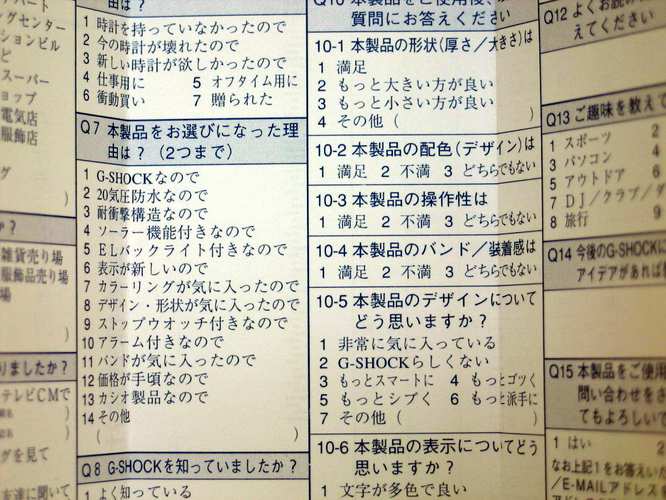 パート
グセンター
ションビル
ど
スーパー
ョップ
電気店
服飾店
グ
)
か？
雑貨売り場
服飾品売り場
場
)
りましたか？
テレビCMで
グを見て
友達に聞いて
由は？
1 時計を持っていなかったので
2 今の時計が壊れたので
3 新しい時計が欲しかったので
4 仕事用に 5 オフタイム用に
6 衝動買い 7 贈られた
Q7 本製品をお選びになった理
由は？（2つまで）
1 G-SHOCKなので
2 20気圧防水なので
3 耐衝撃構造なので
4 ソーラー機能付きなので
5 ELバックライト付きなので
6 表示が新しいので
7 カラーリングが気に入ったので
8 デザイン・形状が気に入ったので
9 ストップウオッチ付きなので
10 アラーム付きなので
11 バンドが気に入ったので
12 価格が手頃なので
13 カシオ製品なので
14 その他
( )
Q8 G-SHOCKを知っていましたか？
1 よく知っている
Q10 本製品をご使用後、
質問にお答えください
10-1 本製品の形状（厚さ／大きさ）は
1 満足
2 もっと大きい方が良い
3 もっと小さい方が良い
4 その他（ ）
10-2 本製品の配色（デザイン）は
1 満足 2 不満 3 どちらでもない
10-3 本製品の操作性は
1 満足 2 不満 3 どちらでもない
10-4 本製品のバンド／装着感は
1 満足 2 不満 3 どちらでもない
10-5 本製品のデザインについて
どう思いますか？
1 非常に気に入っている
2 G-SHOCKらしくない
3 もっとスマートに 4 もっとゴツく
5 もっとシブく 6 もっと派手に
7 その他（ ）
10-6 本製品の表示についてどう
思いますか？
1 文字が多色で良い
Q12 よくお読み
えてください
Q13 ご趣味を教えて
1 スポーツ 2
3 パソコン 4
5 アウトドア 6
7 DJ／クラブ／
8 旅行 9
Q14 今後のG-SHOCKに
アイデアがあれば
Q15 本製品をご使用
問い合わせをさ
てもよろしいで
1 はい 2
なお上記1をお答えいた
/E-MAILアドレス